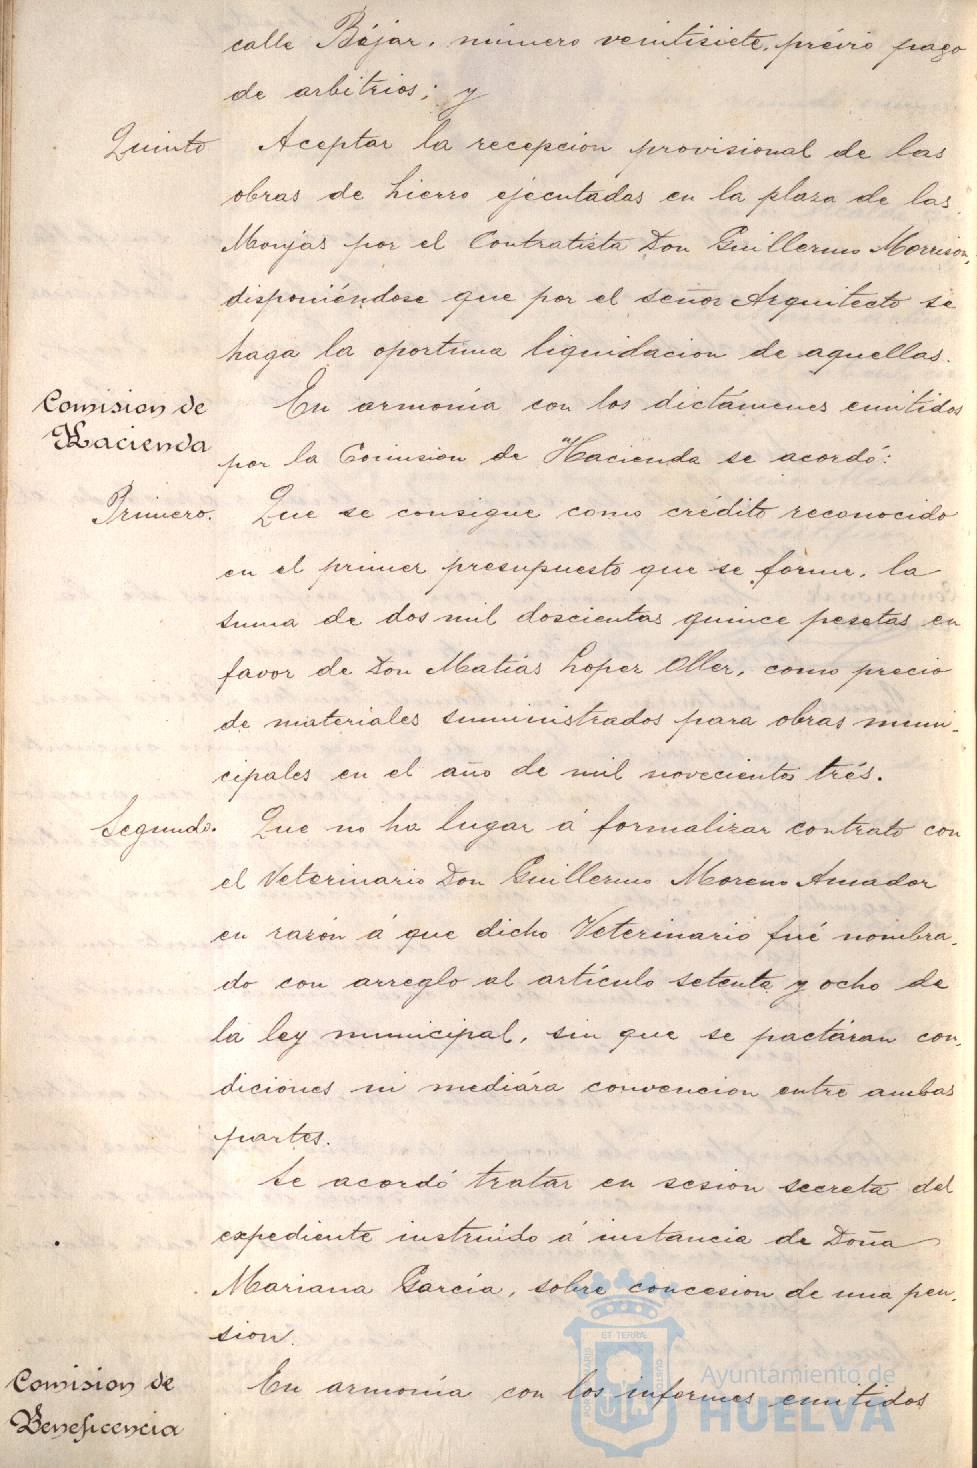 calle Béjar, número veintisiete, prévio pago
de arbitrios; y
Quinto Aceptar la recepcion provisional de las
obras de hierro ejecutadas en la plaza de las
Monjas por el Contratista Don Guillermo Morrison,
disponiéndose que por el señor Arquitecto se
haga la oportuna liquidacion de aquellas.
Comision de Hacienda En armonía con los dictámenes emitidos
por la Comision de Hacienda se acordó:
Primero. Que se consigne como crédito reconocido
en el primer presupuesto que se forme, la
suma de dos mil doscientas quince pesetas en
favor de Don Matías Lopez Oller, como precio
de materiales suministrados para obras muni-
cipales en el año de mil novecientos trés.
Segundo. Que no ha lugar á formalizar contrato con
el Veterinario Don Guillermo Moreno Amador
en razón á que dicho Veterinario fué nombra-
do con arreglo al artículo setenta y ocho de
la ley municipal, sin que se pactáran con-
diciones ni mediára convencion entre ambas
partes.
Se acordó tratar en sesion secreta del
expediente instruido á instancia de Doña
Mariana García, sobre concesion de una pen-
sion.
Comision de Beneficencia En armonía con los informes emitidos
Ayuntamiento de
HUELVA